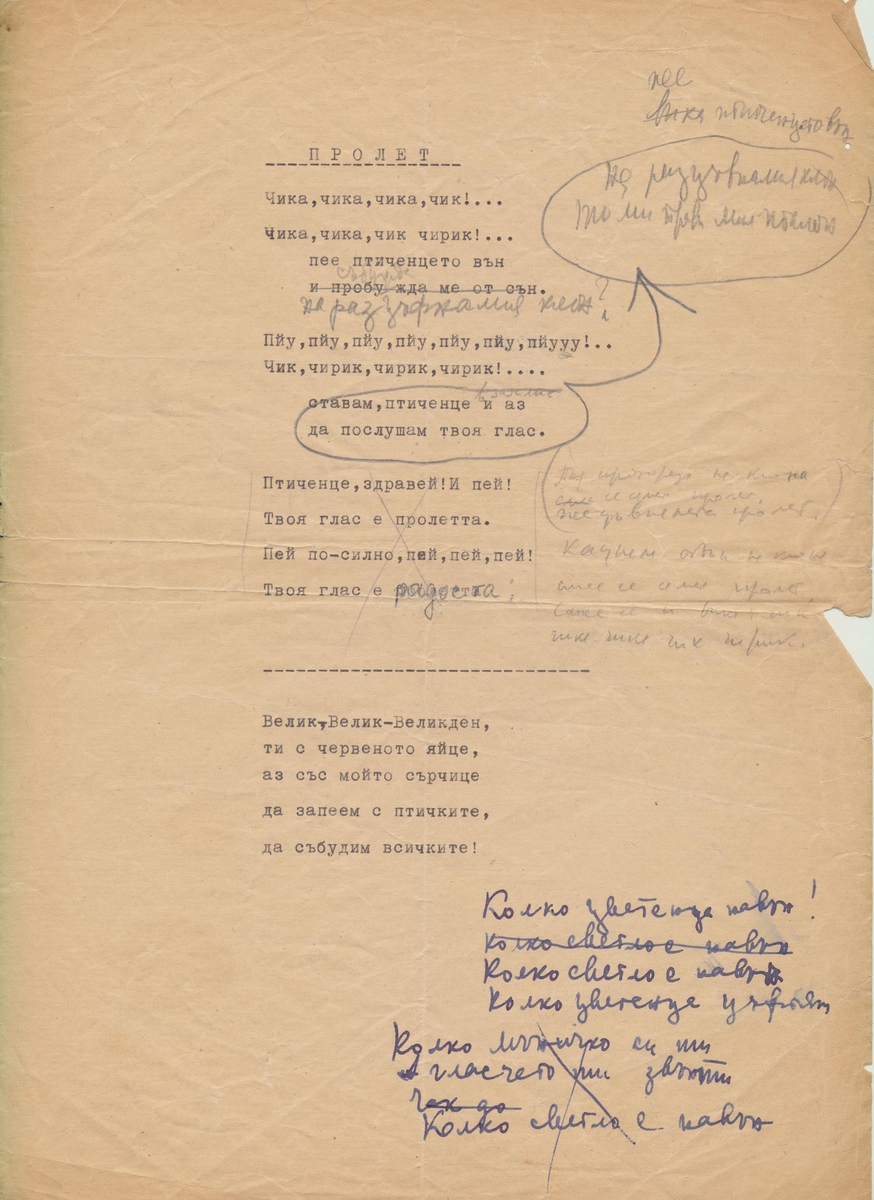 пее
вика птиченцето вън
ПРОЛЕТ
на разцъвналия клон
Чика,чика,чика,чик!...
Чика,чика,чик чирик!...
пее птиченцето вън
събужда
и пробужда ме от сън.
на разцъвналия клон?
Пйу,пйу,пйу,пйу,пйу,пйу,пйууу!..
Чик,чирик,чирик,чирик!....
ставам,птиченце и аз
да послушам твоя глас.
Птиченце,здравей!И пей!
Твоя глас е пролетта.
Пей по-силно,пей,пей,пей!
Твоя глас е радостта!
Велик,Велик-Великден,
ти с червеното яйце,
аз със мойто сърчице
да запеем с птичките,
да събудим всичките!
Колко цветенца навън!
Колко светло е навън
Колко светло е навън
Колко цветенца цъфтят
Колко мъничко си ти
гласчето ти звънти
Чак до
Колко светло е навън